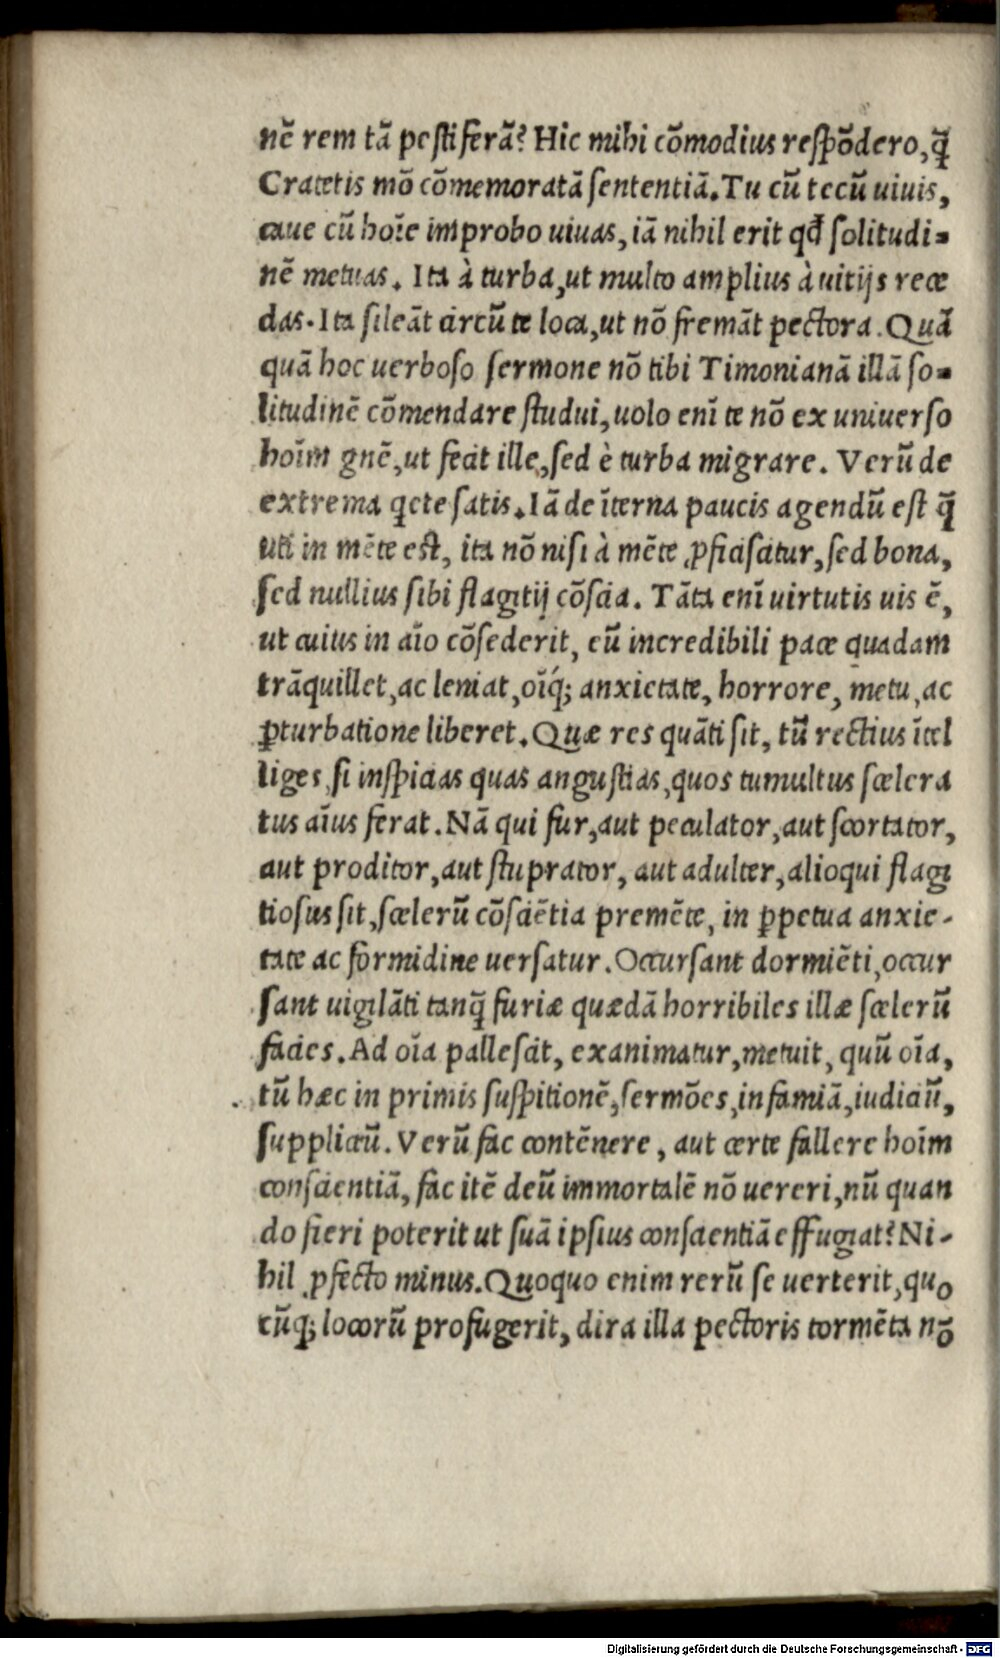 nē rem tā pestiferā? Hic mihi cōmodius respōdero, q̄
Cratetis mō cōmemoratā sententiā. Tu cū tecū uiuis,
caue cū hoīe improbo uiuas, iā nihil erit qđ solitudi=
nē metuas. Ita à turba, ut multo amplius à uitijs rece
das. Ita sileāt circū te loca, ut nō fremāt pectora. Quā
quā hoc uerboso sermone nō tibi Timonianā illā so=
litudinē cōmendare studui, uolo enī te nō ex uniuerso
hoīm gnē, ut fecit ille, sed è turba migrare. Verū de
extrema qete satis. Iā de īterna paucis agendū est q̄
uti in mēte est, ita nō nisi à mēte ꝓficiscitur, sed bona,
sed nullius sibi flagitij cōscia. Tāta enī uirtutis uis ē,
ut cuius in aīo cōsederit, eū incredibili pace quadam
trāquillet, ac leniat, oīq́; anxietate, horrore, metu, ac
ꝑturbatione liberet. Quæ res quāti sit, tū rectius ītel
liges, si inspicias quas angustias, quos tumultus scelera
tus aīus ferat. Nā qui fur, aut peculator, aut scortator,
aut proditor, aut stuprator, aut adulter, alioqui flagi
tiosus sit, scelerū cōsciētia premēte, in ꝑpetua anxie-
tate ac formidine uersatur. Occursant dormiēti, occur
sant uigilāti tanq̄ furiæ quædā horribiles illæ scelerū
facies. Ad oīa pallescit, exanimatur, metuit, quū oīa,
tū hæc in primis suspitionē, sermōes, infamiā, iudiciū,
suppliciū. Verū fac contēnere, aut certe fallere hoīm
conscientiā, fac itē deū immortalē nō uereri, nū quan
do fieri poterit ut suā ipsius conscientiā effugiat? Ni-
hil ꝓfecto minus. Quoquo enim rerū se uerterit, quo
cūq; locorū profugerit, dira illa pectoris tormēta nō
Digitalisierung gefördert durch die Deutsche Forschungsgemeinschaft - DFG